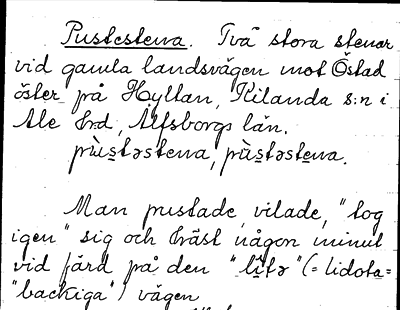 Pustestena. Två stora stenar
vid gamla landsvägen mot Östad
öster på Hyltan, Kilanda s:n i
Ale hrd, Älfsborgs län.
pùstəstena, pùstəstena.
Man pustade, vilade, "tog
igen" sig och häst någon minut
vid färd på den "litə" (= lidota=
"backiga") vägen